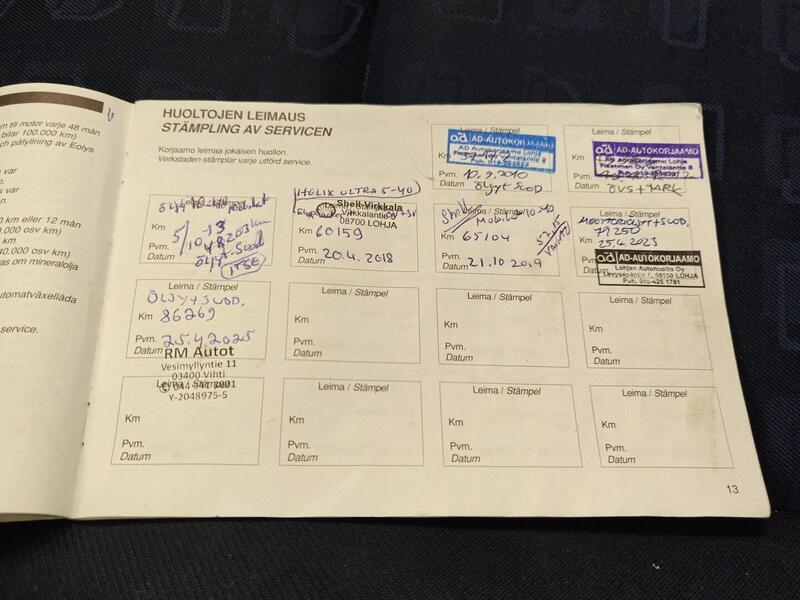 m till motor varje 48 mån
bilar 100.000 km)
ch påfyllning av Eolys.
var
s var
0 km eller 12 mån
000 osv km)
4.000 osv km)
as om mineralolja
utomatväxellåda
service.
HUOLTOJEN LEIMAUS
STÄMPLING AV SERVICEN
Korjaamo leimaa jokaisen huollon.
Verkstaden stämplar varje utförd service.
Leima / Stämpel
ad AD-AUTOKORJAAMO
AD Autokorjaamo Lohja
Km
Pvm. 10.9.2010
Datum ÖLJYT+SUOD
Leima / Stämpel
ad AD-AUTOKORJAAMO
AD Autokorjaamo Lohja
Km
Pvm.
Datum
Leima / Stämpel
Km 5/ -13
48203 km
Pvm.
Datum ÖLJYT-SUOD
ITSE
HELIX ULTRA 5-40
Shell-Virkkala
Virkkalantie
08700 LOHJA
Km 60159
Pvm. 20.4.2018
Datum
Leima / Stämpel
Shell
Km 65104
Pvm. 21.10.2019
Datum
MOOTTORIÖLJYT+SUOD.
Km 79250
Pvm. 25.4.2023
Datum
ad AD-AUTOKORJAAMO
Lohjan Autohuolto Oy
08150 LOHJA
Puh. 019-425 1781
Leima / Stämpel
ÖLJYT+SUOD.
Km 86269
Pvm. 25.4.2025
Datum
RM Autot
Vesimyllyntie 11
03400 Vihti
Y-2048975-5
Leima / Stämpel
Km
Pvm.
Datum
Leima / Stämpel
Km
Pvm.
Datum
Leima / Stämpel
Km
Pvm.
Datum
Leima / Stämpel
Km
Pvm.
Datum
Leima / Stämpel
Km
Pvm.
Datum
Leima / Stämpel
Km
Pvm.
Datum
Leima / Stämpel
Km
Pvm.
Datum
13